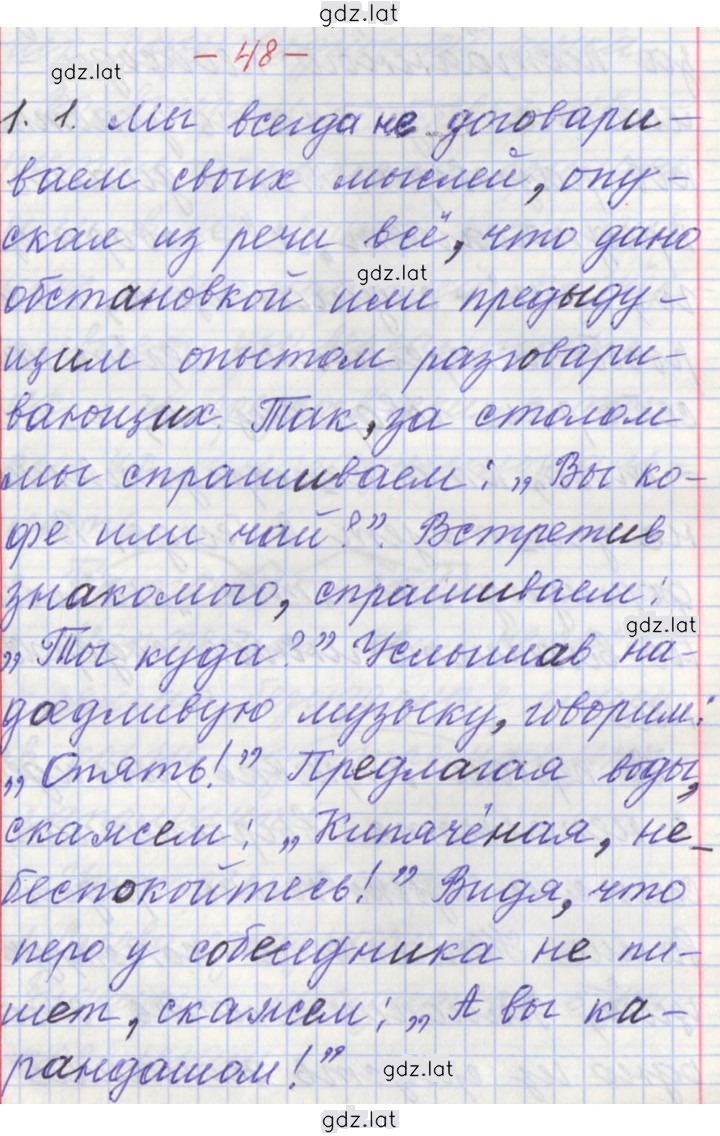 gdz.lat
- 48 -
gdz.lat
1. 1. Мы всегда не договари-
ваем своих мыслей, опу-
ская из речи всё, что дано
gdz.lat
обстановкой или предыду-
щим опытом разговари-
вающих. Так, за столом
мы спрашиваем: „Вы ко-
фе или чай?”. Встретив
знакомого, спрашиваем:
gdz.lat
„Ты куда?” Услышав на-
доедливую музыку, говорим:
„Опять!” Предлагая воды,
скажем: „Кипячёная, не
беспокойтесь!” Видя, что
перо у собеседника не пи-
шет, скажем: „А вы ка-
рандашом!”
gdz.lat
gdz.lat